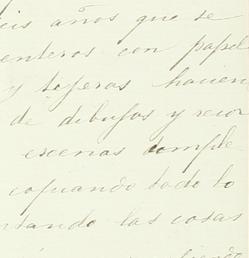 eis años que se
enteros con papel
y tijeras hacien
de dibujos y recor
escenas comple
copiando todo lo
ntando las cosas